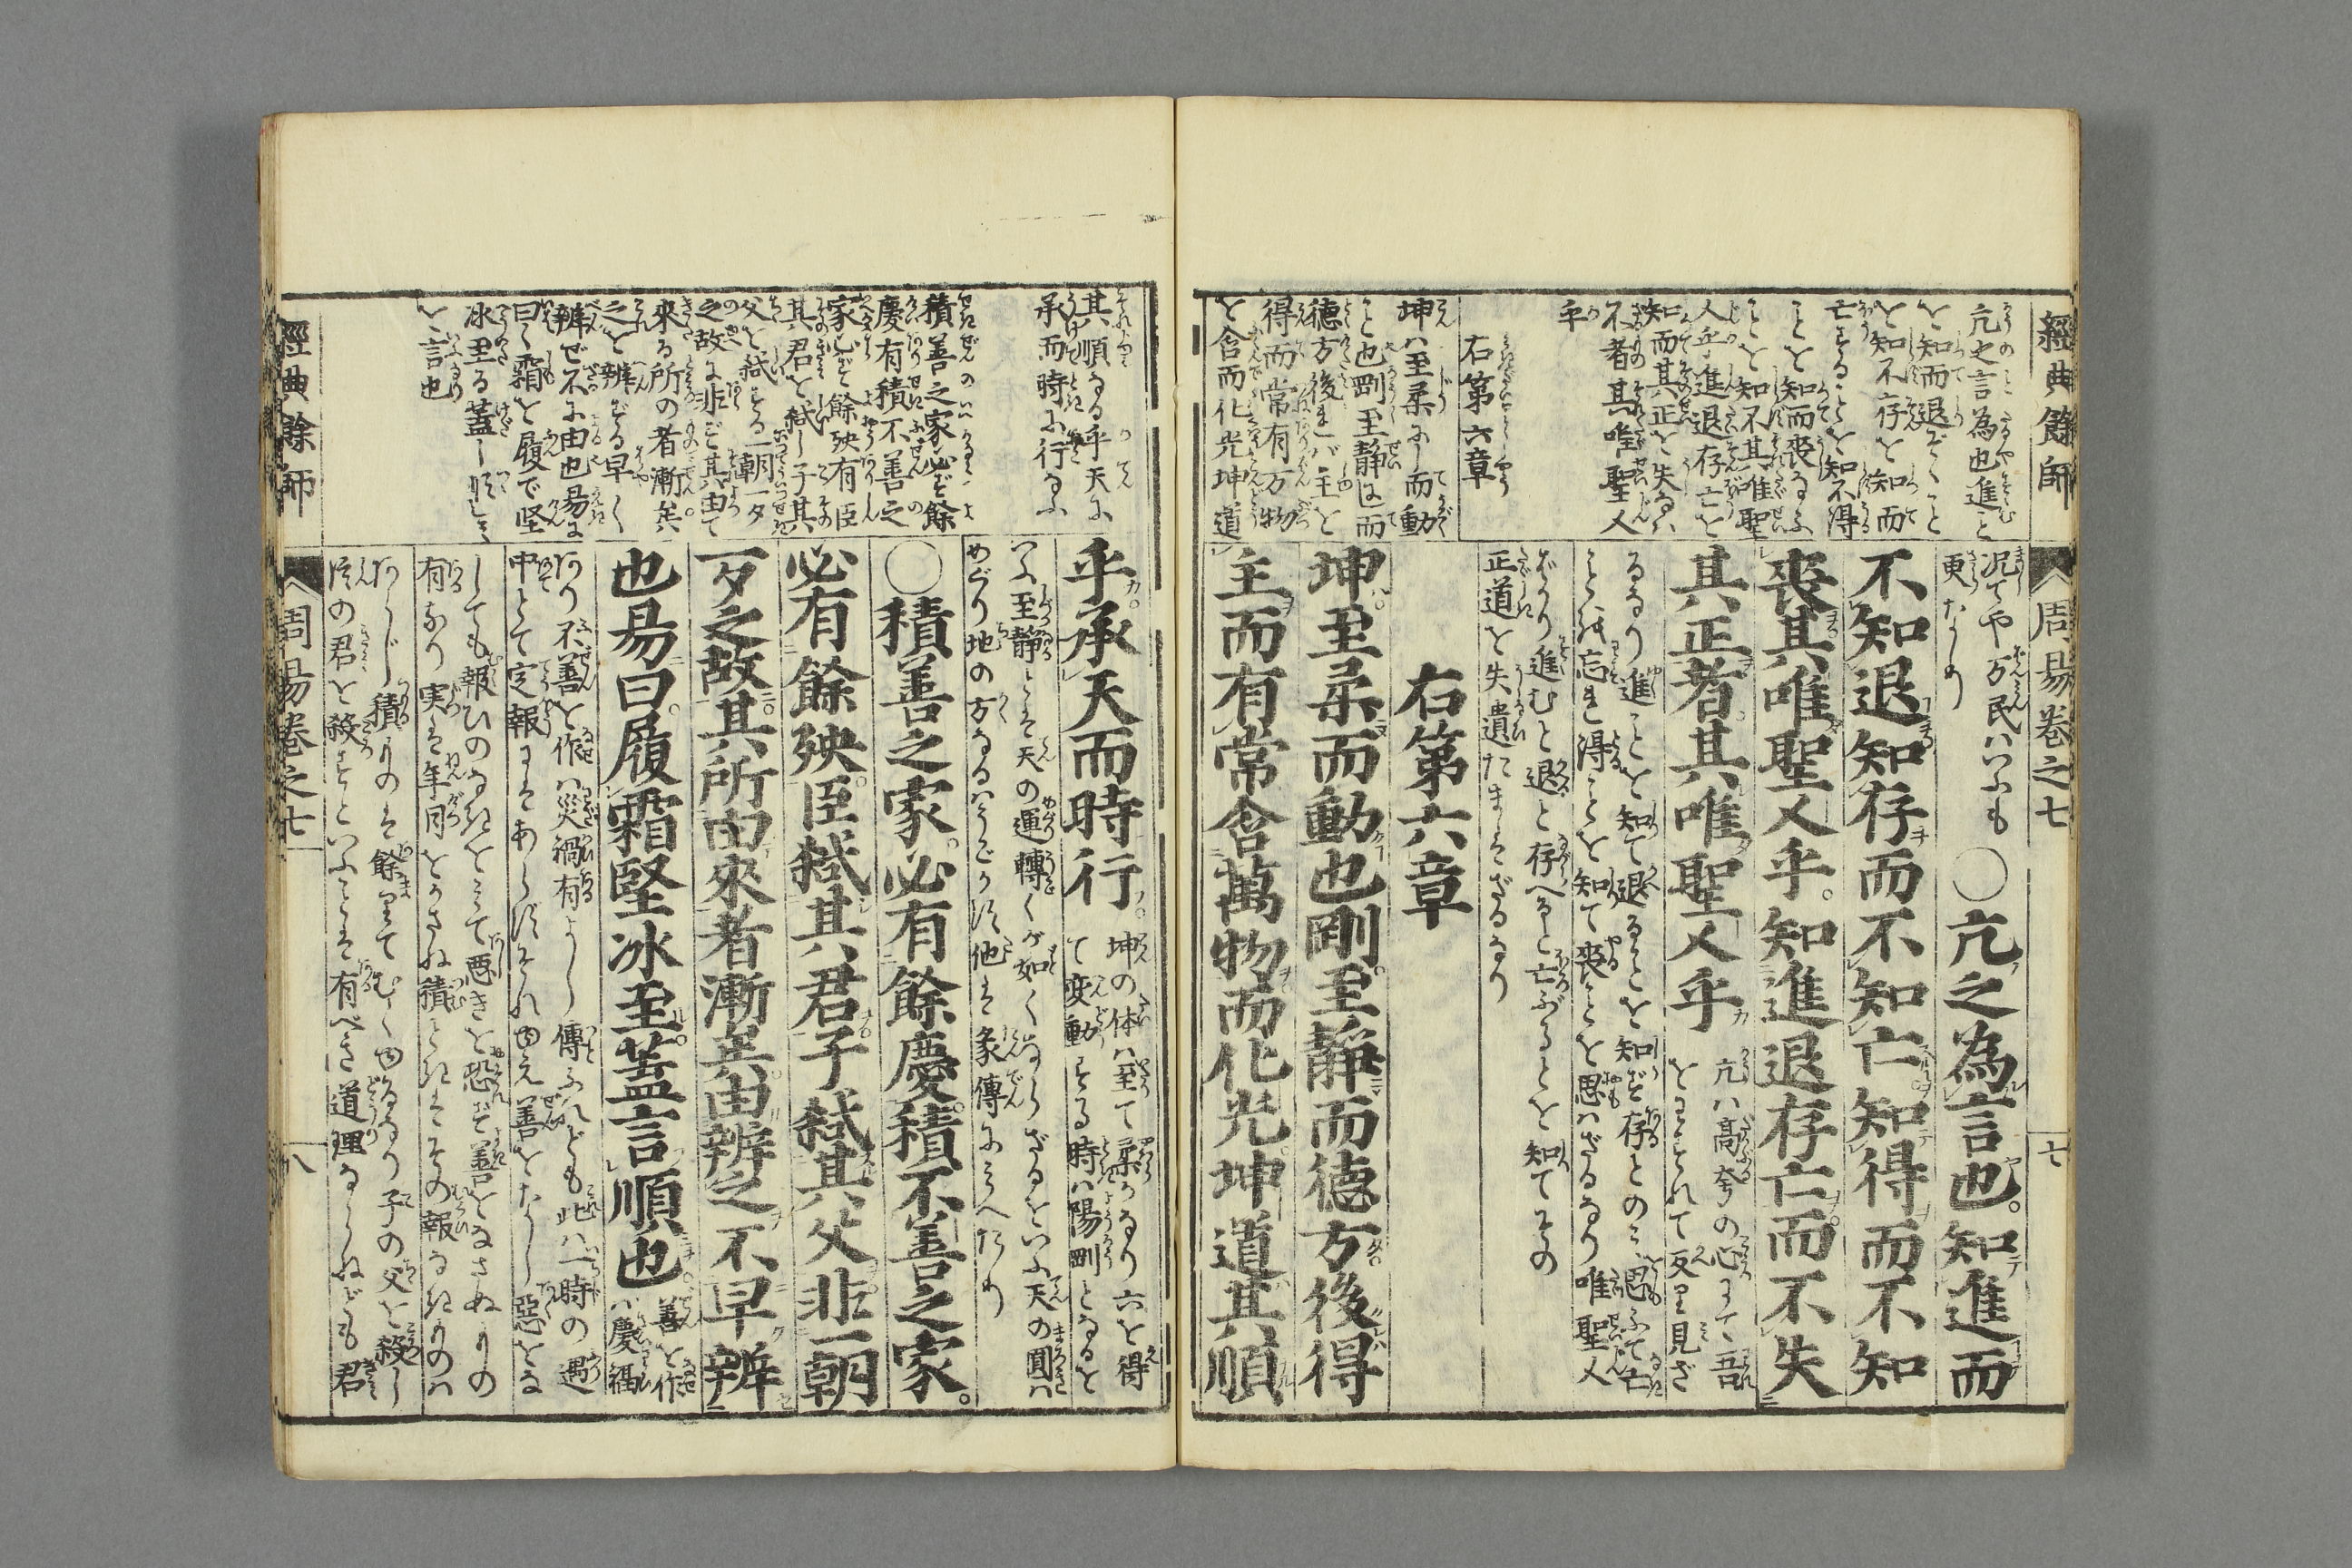 經典餘師
周易卷之七
七
亢之言為也進こと
を知而退ぞくこと
を知不存を知而
亡することを知不得
ことを知而喪なふ
ことを知不其唯聖
人乎進退存亡を
知而其正を失なハ
不者其唯聖人
乎
右第六章
坤ハ至柔にして而動
こと也剛至静にして而
徳方後るれバ主を
得而常有万物
を含而化光坤道
况てや万民ハいふも
更なり
〇亢之為言也。知進而
不知退知存而不知亡知得而不知
喪其唯聖人乎。知進退存亡而不失
其正者其唯聖人乎
亢ハ高夸の心にて吾
をわすれて反り見ざ
るなり進ことを知て退ることを知ず存とのミ思ふて亡
ことを忘れ得ことを知て喪ことを思ハざるなり唯聖人
ばかり進むと退と存へると亡ぶることを知てその
正道を失遺たまハざるなり
右第六章
坤至柔而動也剛至靜而德方後得
主而有常含萬物而化光坤道其順
其順なる乎天に
承而時に行なふ
積善之家必ず餘
慶有積不善之
家必ず餘殃有臣
其君を弑し子其
父を弑する一朝一夕
之故に非ず其由て
來る所の者漸矣
之を辨ずる早く
辨ぜ不に由也易に
曰く霜を履で堅
冰至る蓋し順こと
を言也
乎承天而時行。
坤の体ハ至て柔かなり六を得
て変動する時ハ陽剛となるを
いふ至静とハ天の運轉くが如くならざるをいふ天の圓ハ
めぐり地の方なるハうごかず他ハ彖傳にミへたり
〇積善之家。必有餘慶。積不善之家。
必有餘殃。臣弑其君子弑其父非一朝
一夕之故其所由來者漸矣由辨之不早辨
也易曰履霜堅冰至。蓋言順也
善を作
ハ慶福
あり不善を作ハ災禍有よし傳ふれども此ハ一時の遇
中とて定報にハあらずそれゆえ善をなし惡をな
しても報ひのなきをミて悪きを恐ず善をなさぬもの
有なり実ハ年月をかさね積ときハその報なきものハ
あらじ積ものハ餘りてむくゆるなり子の父を殺し
臣の君を殺すといふことハ有べき道理ならねども君
經典餘師
周易卷之七
八